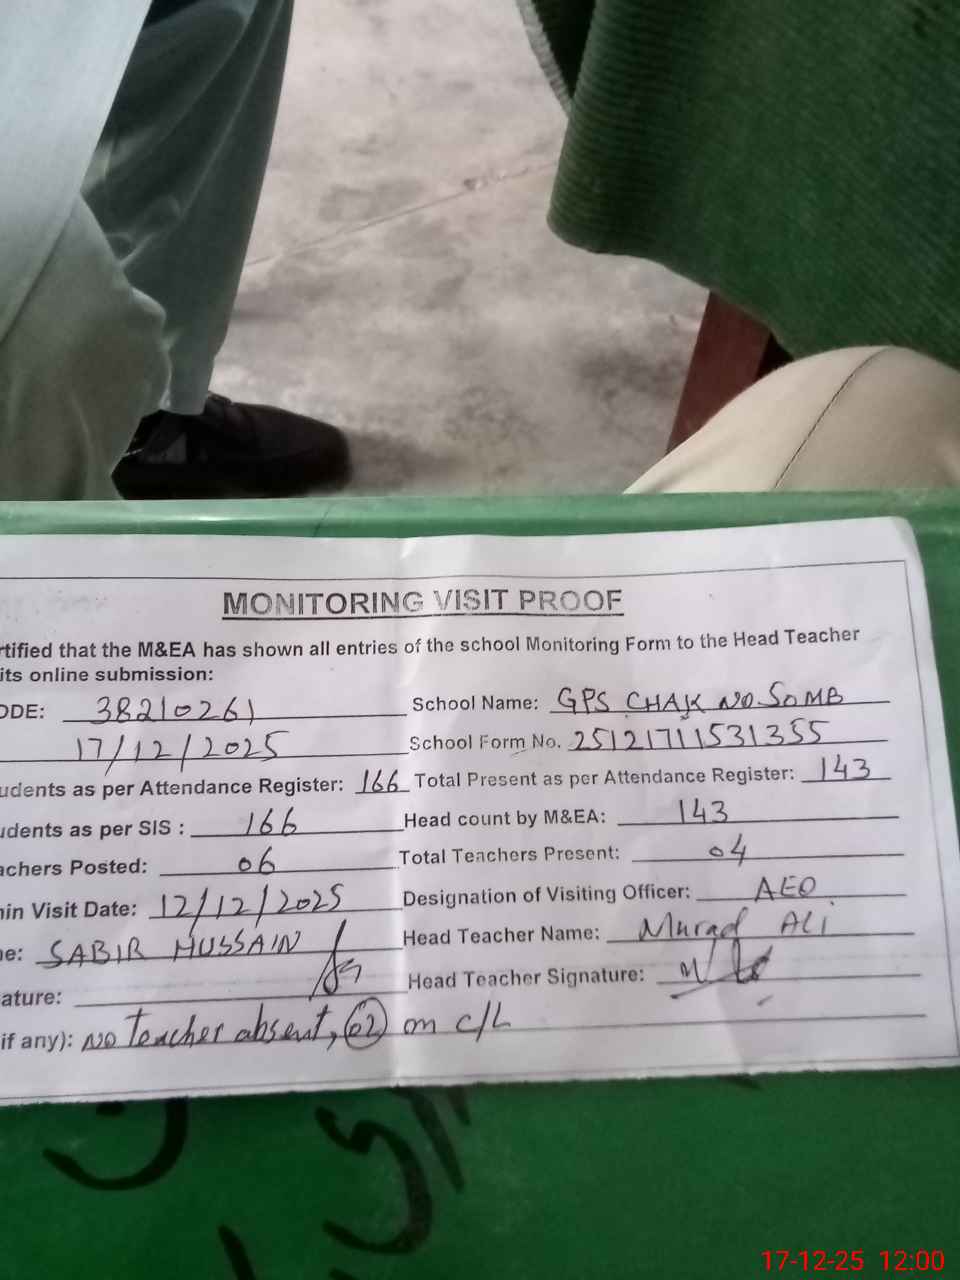 MONITORING VISIT PROOF
rtified that the M&EA has shown all entries of the school Monitoring Form to the Head Teacher
its online submission:
ODE: 38210261 School Name: GPS CHAK NO.50MB
17/12/2025 School Form No. 25121711531355
udents as per Attendance Register: 166 Total Present as per Attendance Register: 143
udents as per SIS : 166 Head count by M&EA: 143
achers Posted: 06 Total Teachers Present: 04
min Visit Date: 12/12/2025 Designation of Visiting Officer: AEO
ne: SABIR HUSSAIN Head Teacher Name: Murad ALI
ature: Head Teacher Signature:
if any): No Teacher absent, 02 on C/L
17-12-25 12:00